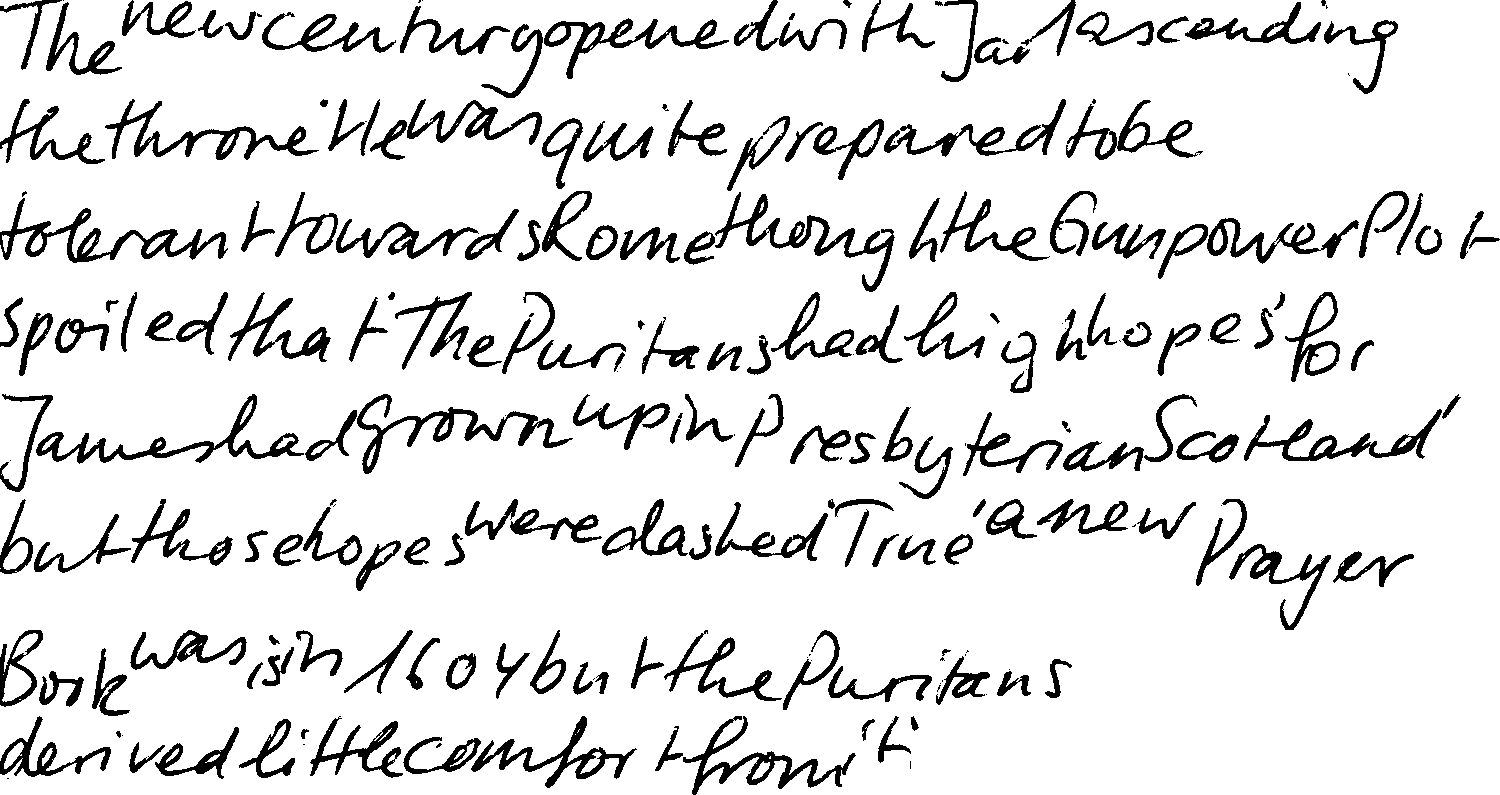 The new century opened with Ja 1 ascending
the throne. He was quite prepared to be
tolerant towards Rome though the Gunpower Plot
spoiled that. The Puritans had high hopes, for
James had grown up in Presbyterian Scotland,
but those hopes were dashed. True, a new Prayer
Book was is in 1604 but the Puritans
derived little comfort from it.